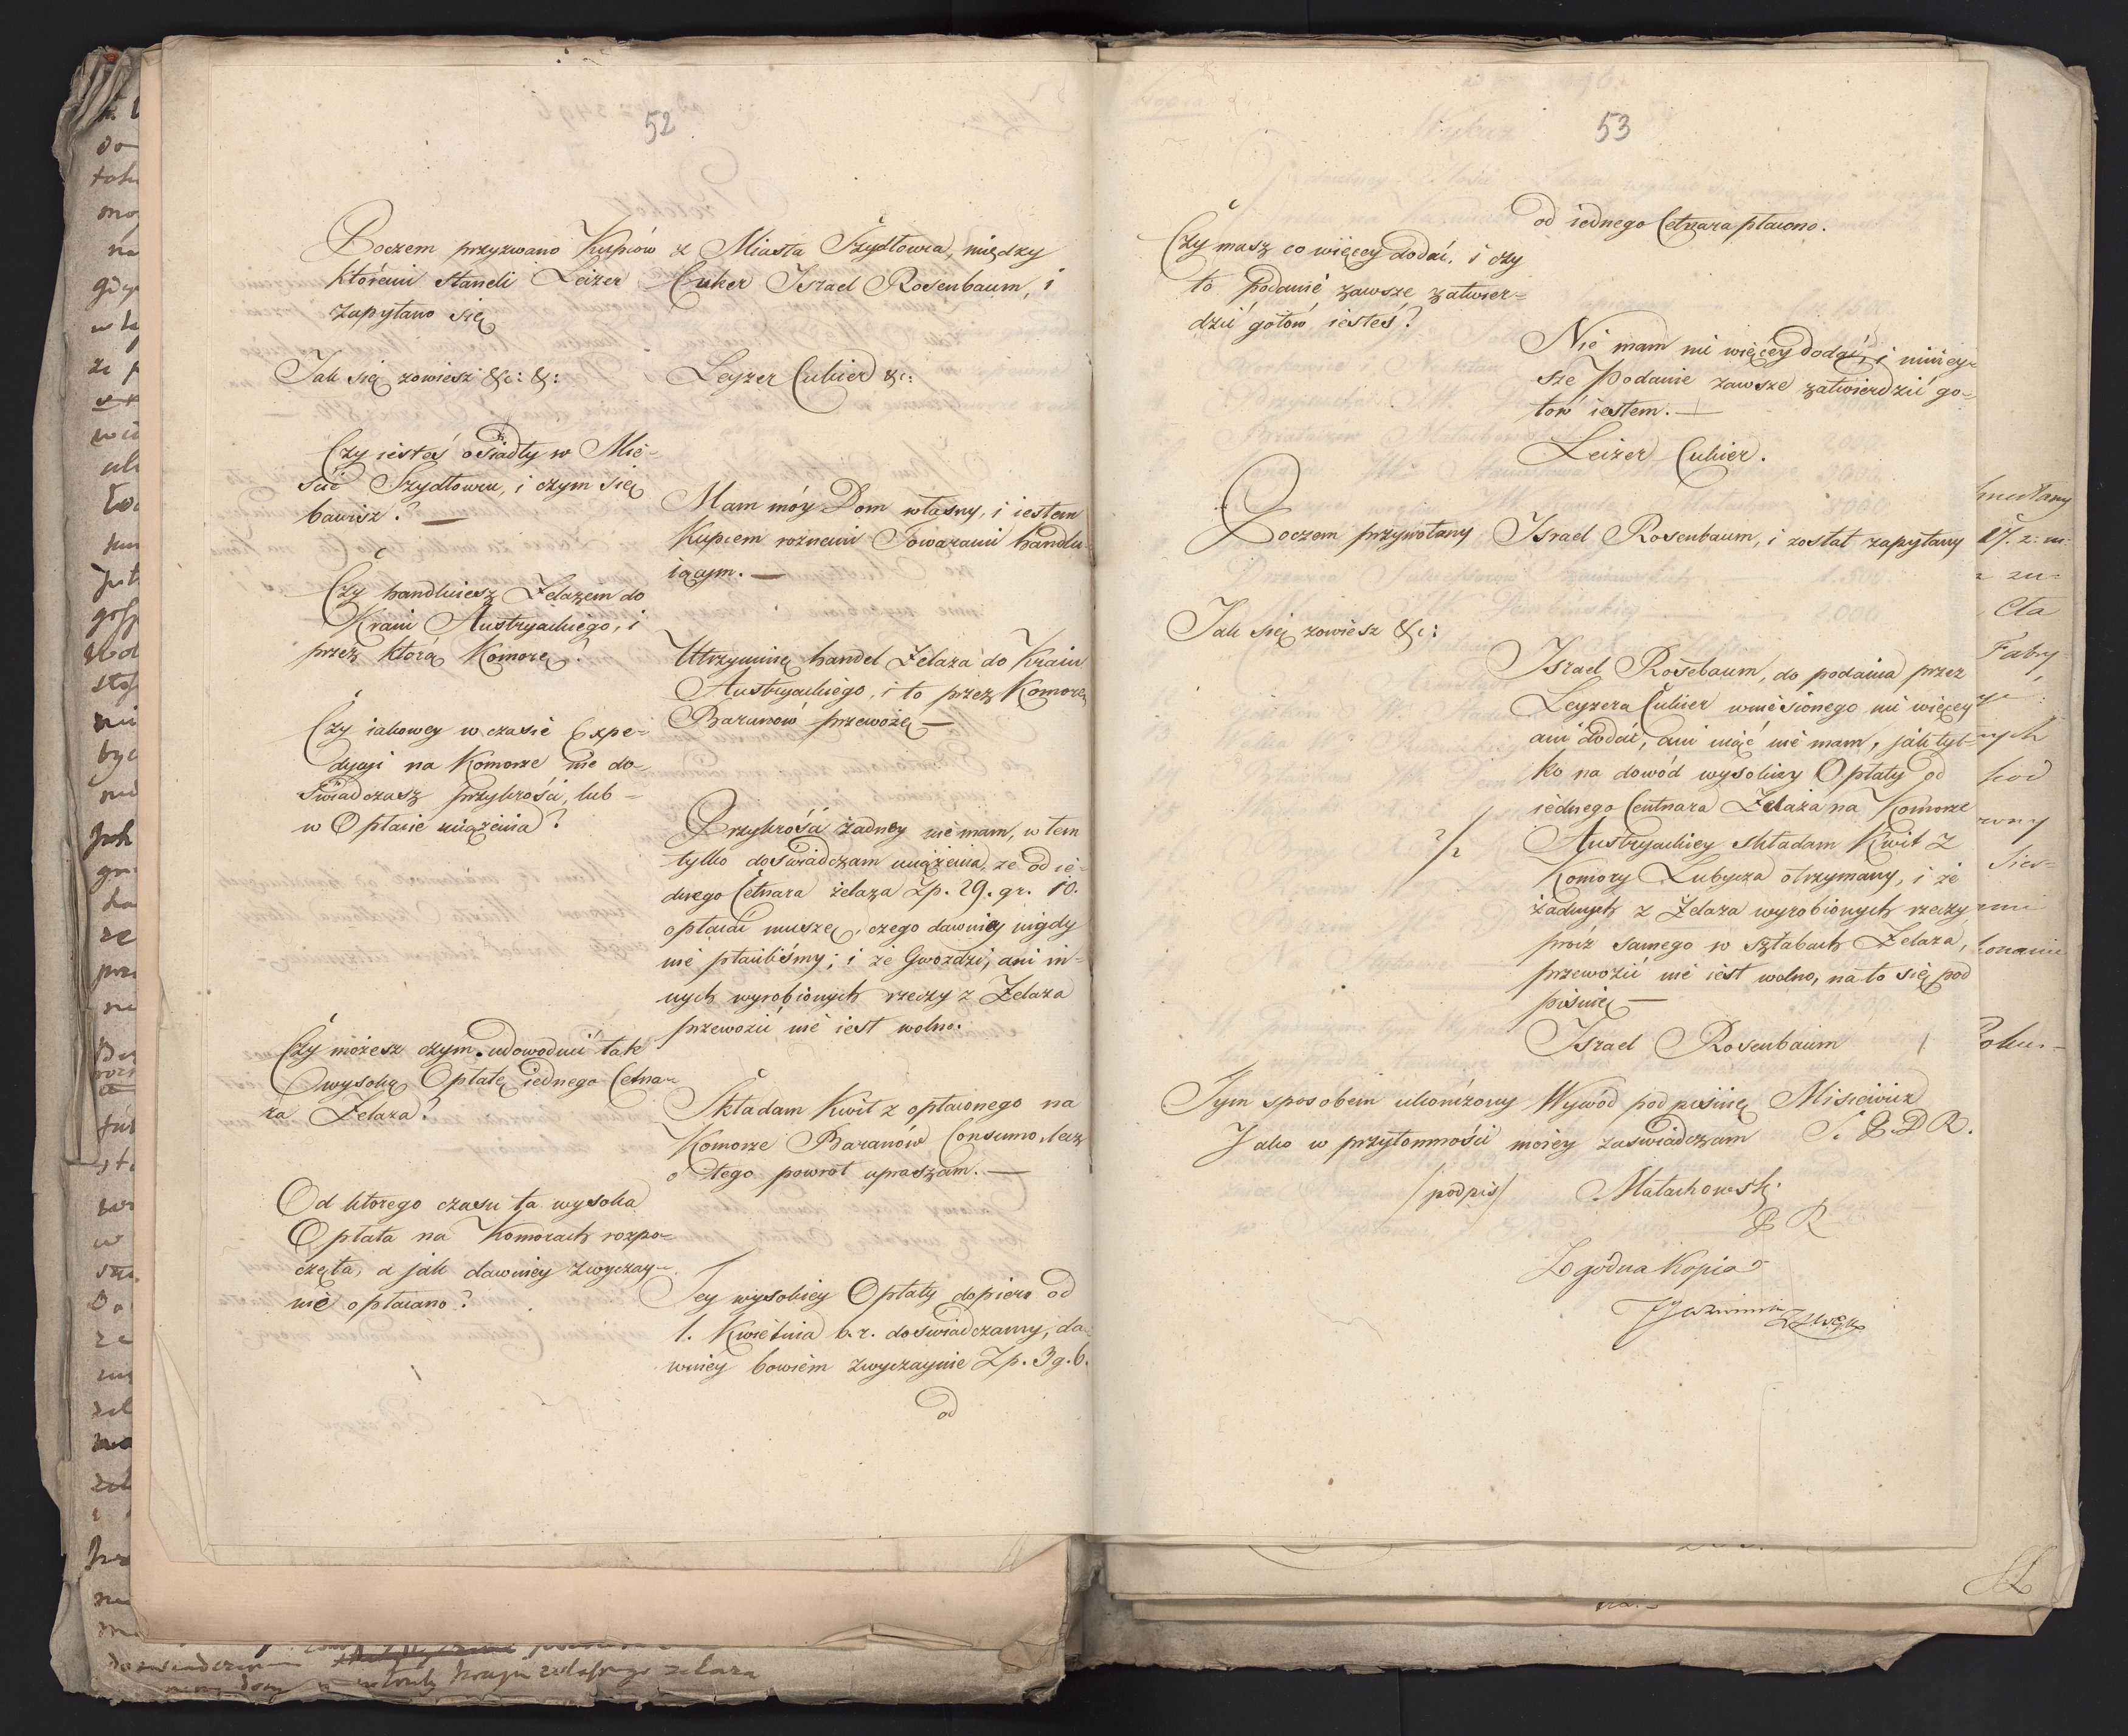 52
Poczem przyzwano Kupców z Miasta Szydłowca, między
któremi staneli Leizer Cuker Israel Rosenbaum, i
zapytano się
Jak się zowiesz &c: &:
Leyzer Cukier &c:
Czy iesteś osiadły w Mie-
ście Szydłowcu, i czym się
bawisz? —
Mam móy Dom własny, i iestem
Kupcem roznemi Towarami handlu-
iącym. —
Czy handluiesz Zelazem do
Kraiu Austryackiego, i
przez którą Komorę?
Utrzymuię handel Zelaza do Kraiu
Austryackiego, i to przez Komorę
Baranów przewożę —
Czy iakowey w czasie Expe-
dycyi na Komorze nie do-
świadczasz przykrości, lub -
w Opłacie uciążenia?
Przykrości żadney nie mam, w tem
tylko doświadczam uciążenia, że od ie-
dnego Cetnara żelaza Zp. 29. gr. 10.
opłacać muszę, czego dawniey nigdy
nie płaciliśmy; i że Gwoździ, ani in-
nych wyrobionych rzeczy z Zelaza
przewozić nie iest wolno.
Czy możesz czym udowodnić tak
wysoką Opłatę iednego Cetna-
ra Zelaza?
Składam Kwit z opłaconego na
Komorze Baranów Consumo, lecz
o tego powrót upraszam. —
Od ktorego czasu ta wysoka
Opłata na Komorach rozpo-
częta, a jak dawniey zwyczay-
nie opłacano?
Tey wysokiey Opłaty dopiero od
1. Kwietnia b. r. doświadczamy, da-
wniey bowiem zwyczaynie Zp. 3 g. 6.
od
53
od iednego Cetnara płacono.
Czy masz co więcey dodać, i czy
to Podanie zawsze zatwier-
dzić gotow iesteś?
Nie mam nic więcey dodać, i niniey-
sze Podanie zawsze zatwierdzić go-
tow iestem. —
Leizer Cukier.
Poczem przywołany Israel Rosenbaum, i został zapytany
Jak się zowiesz &c:
Israel Rosebaum, do podania przez
Leyzera Cukier wniesionego nic więcey
ani dodać, ani uiąć nie mam, jak tyl-
ko na dowód wysokiey Opłaty od
iednego Centnara Zelaza na Komorze
Austryackiey składam Kwit z
Komory Lubycza otrzymany, i że
żadnych z Zelaza wyrobionych rzeczy
prócz samego w sztabach Zelaza,
przewozić nie iest wolno, na to się pod
pisuię —
Israel Rosenbaum
Tym sposobem ukończony Wywód podpisuię Misiewicz
S. P. D R.
Jako w przytomności moiey zaświadczam
/podpis/ Małachowski
P R
Zgodna Kopia